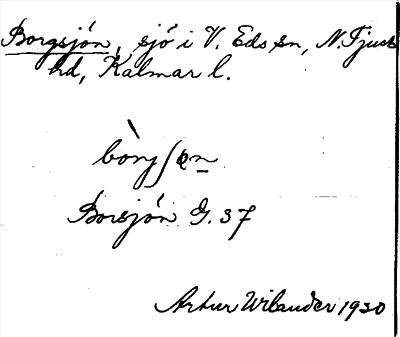 Borgsjön, sjö i V. Eds sn, N. Tjust
hd, Kalmar l.
Borsjön G. 37
Artur Wilander 1930